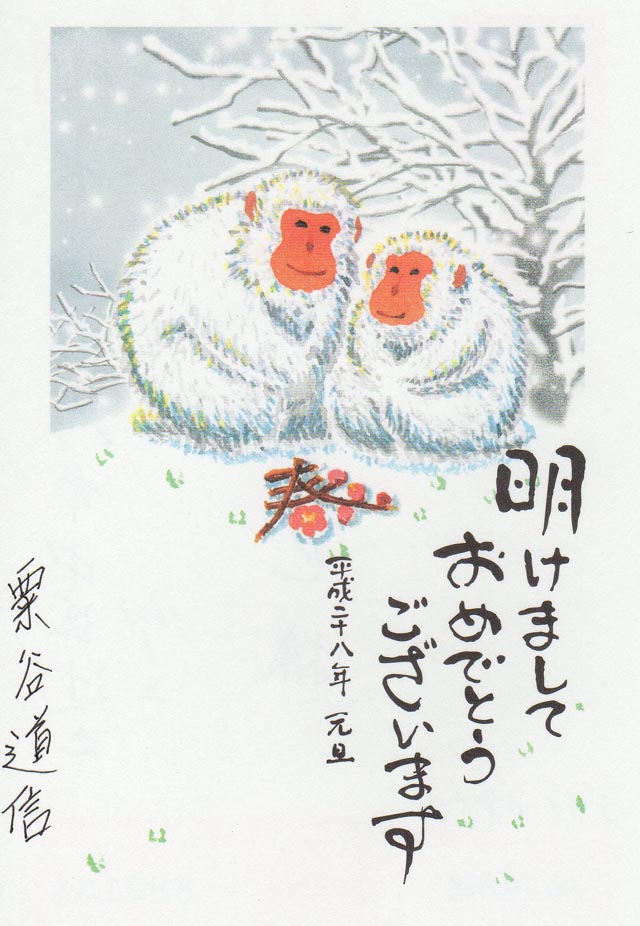 明けまして
おめでとう
ございます
平成二十八年 元旦
粟谷道信